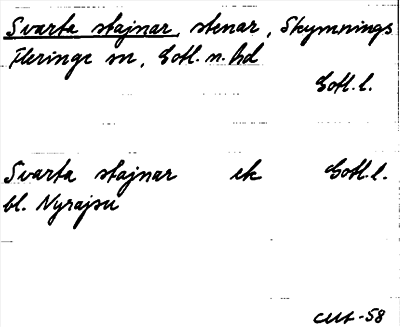 Svarta stajnar, stenar, Skymnings
Fleringe sn, Gotl. n. hd
Gotl. l.
Svarta stajnar ek Gotl. l.
bl. Nyrajsu
CMA-58